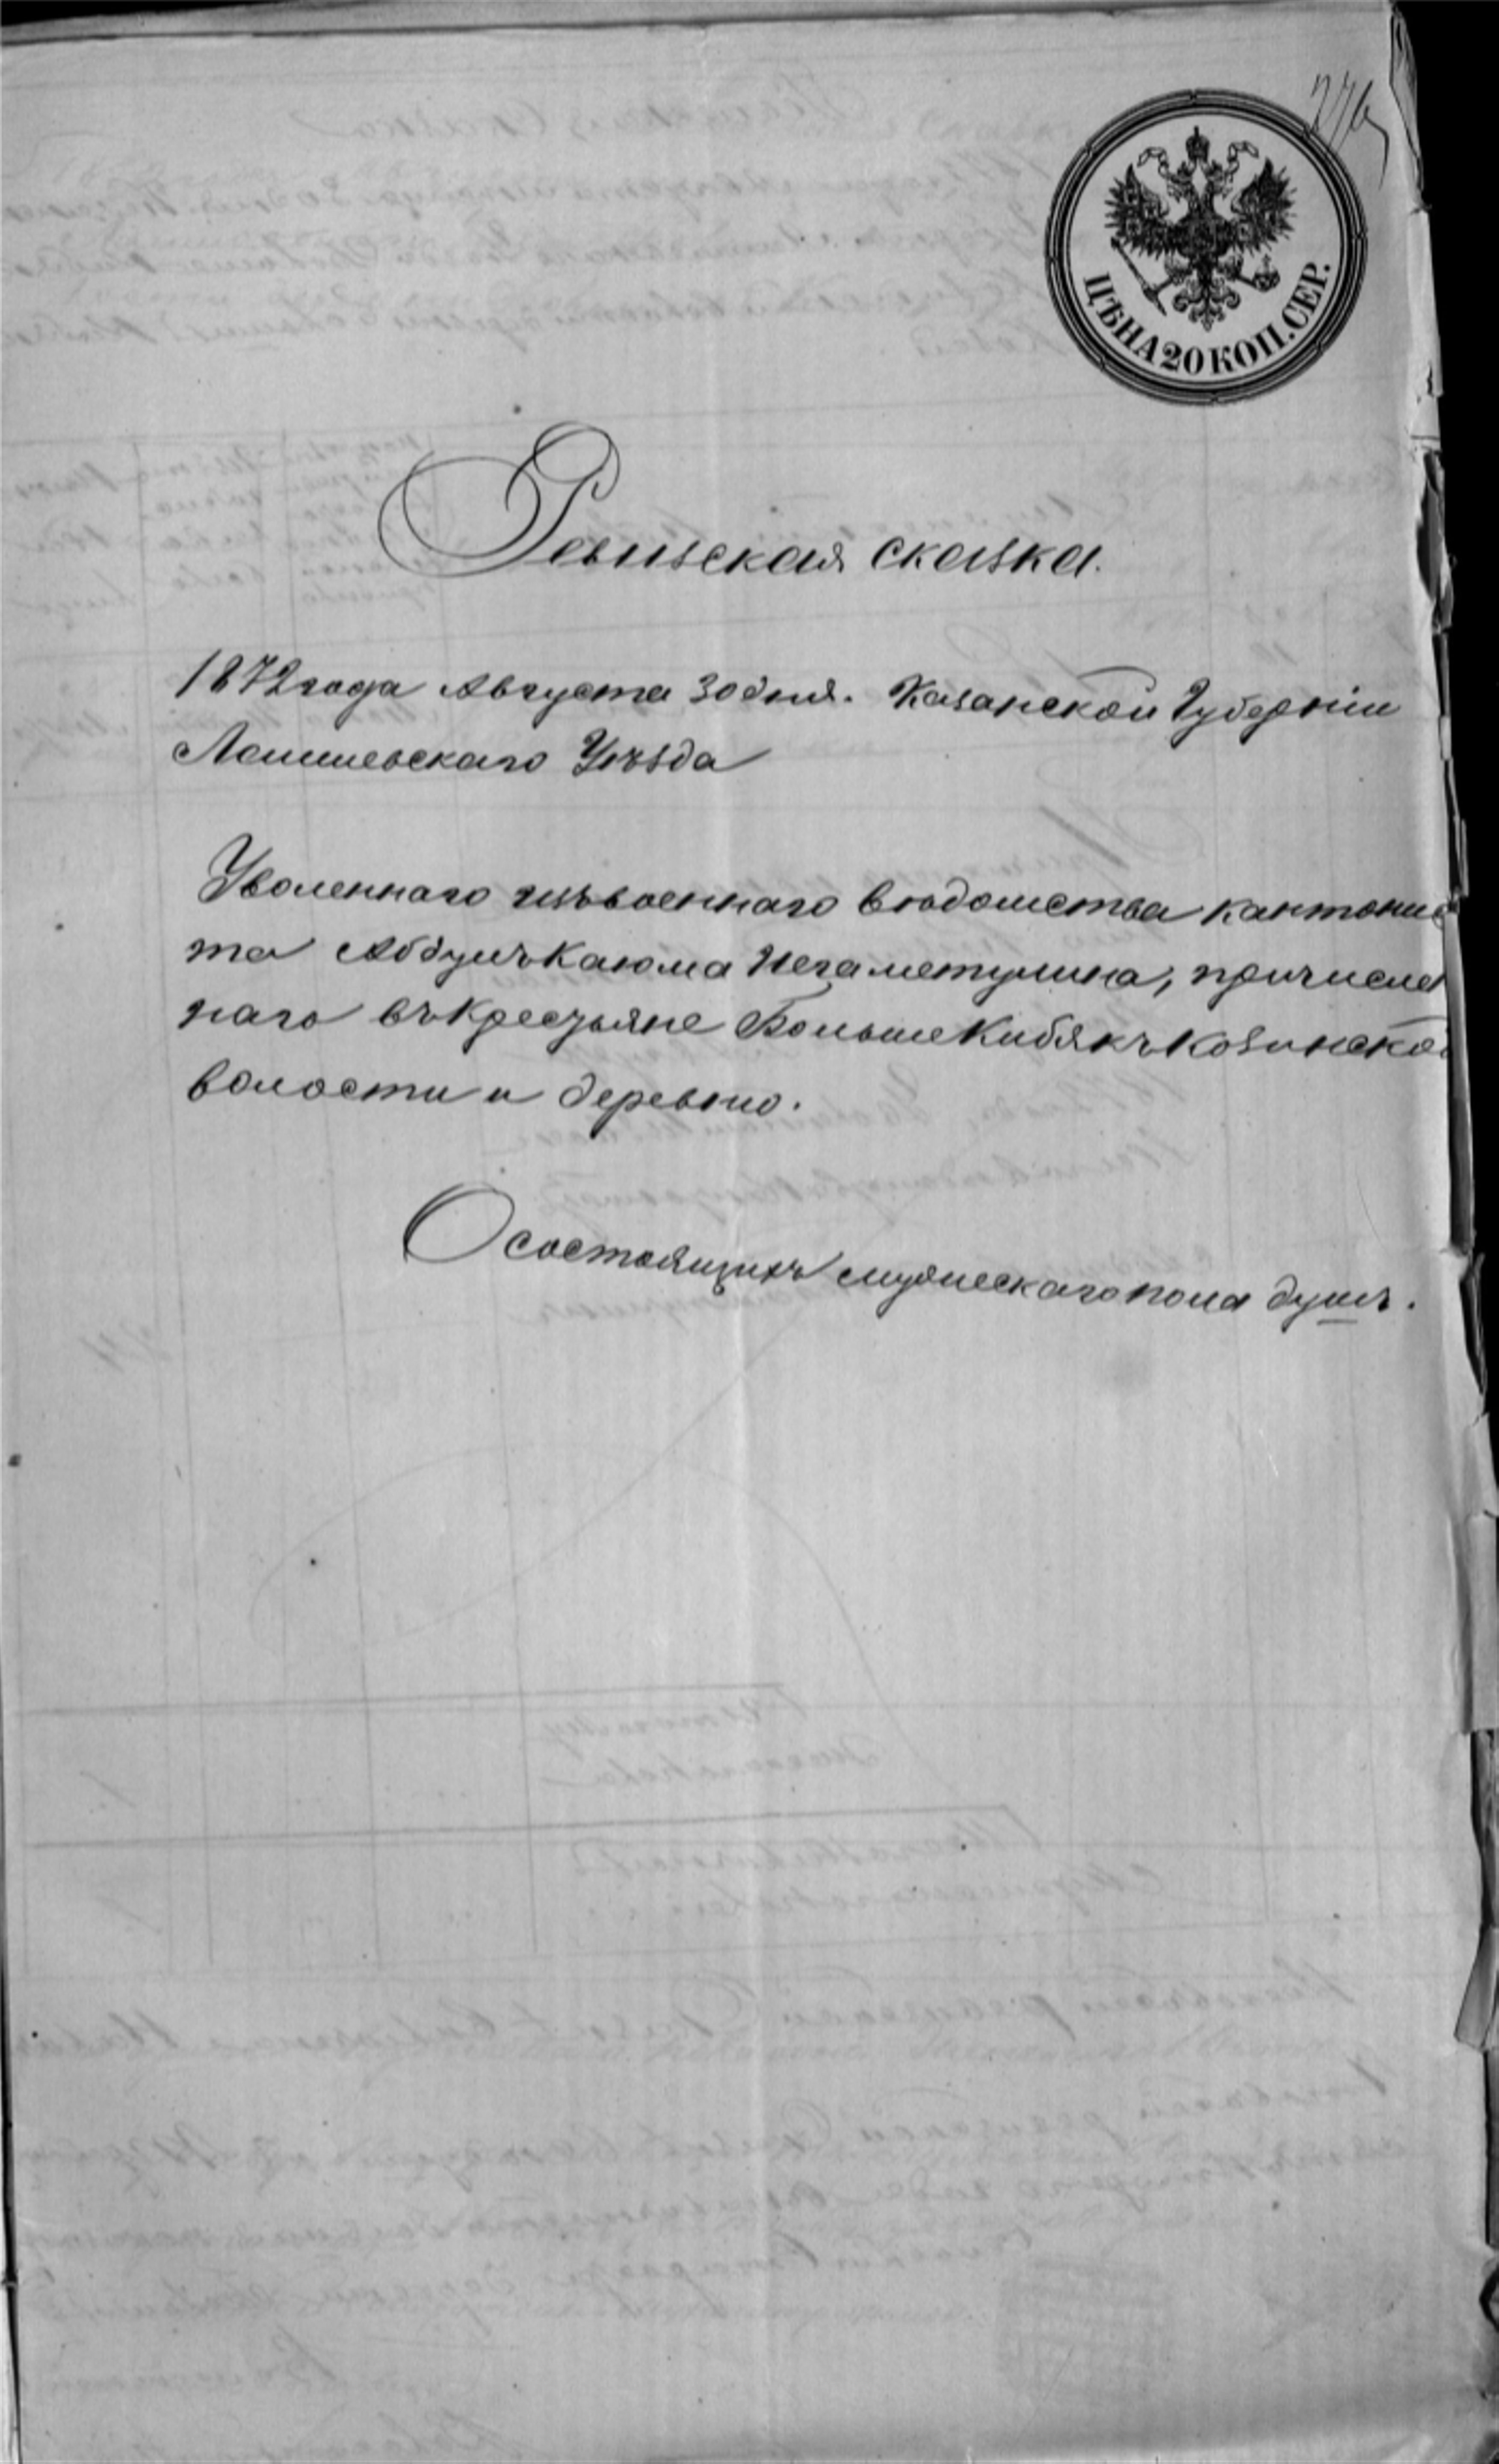 276
ЦѢНА 20 КОП. СЕР.
Ревизская сказка.
1872 года Августа 30 дня. Казанской Губерніи
Лаишевскаго Уѣзда
Уволеннаго изъ военнаго вѣдомства кантонис
та Абдулъ Каюма Негаметулина, причислен
наго въ крестьяне Больше Кибякъ Козинской
волости и деревню.
О состоящихъ мужескаго пола душъ.